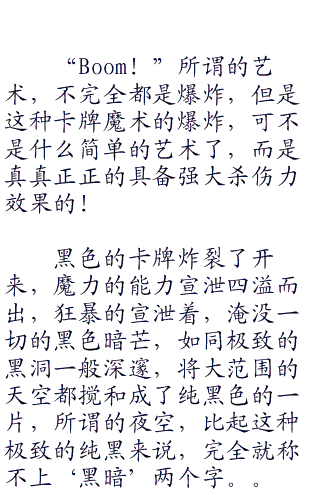 “Boom！”所谓的艺
术，不完全都是爆炸，但是
这种卡牌魔术的爆炸，可不
是什么简单的艺术了，而是
真真正正的具备强大杀伤力
效果的！
黑色的卡牌炸裂了开
来，魔力的能力宣泄四溢而
出，狂暴的宣泄着，淹没一
切的黑色暗芒，如同极致的
黑洞一般深邃，将大范围的
天空都搅和成了纯黑色的一
片，所谓的夜空，比起这种
极致的纯黑来说，完全就称
不上‘黑暗’两个字。。